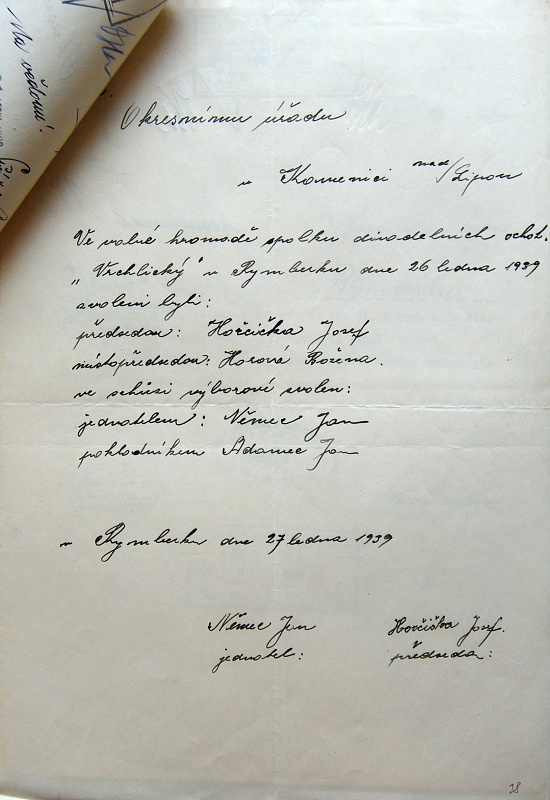 Na vědomí!
Okresnímu úřadu
v Kamenici nad/Lipou
Ve valné hromadě spolku divadelních ochot.
„Vrchlický" v Rymberku dne 26 ledna 1939
zvoleni byli:
předsedou: Hořčička Josef
místopředsedou: Horová Božena.
ve schůzi výborové zvolen:
jednatelem: Němec Jan
pokladníkem Adamec Jan
v Rymberku dne 27 ledna 1939
Němec Jan Hořčička Josef.
jednatel: předseda:
38